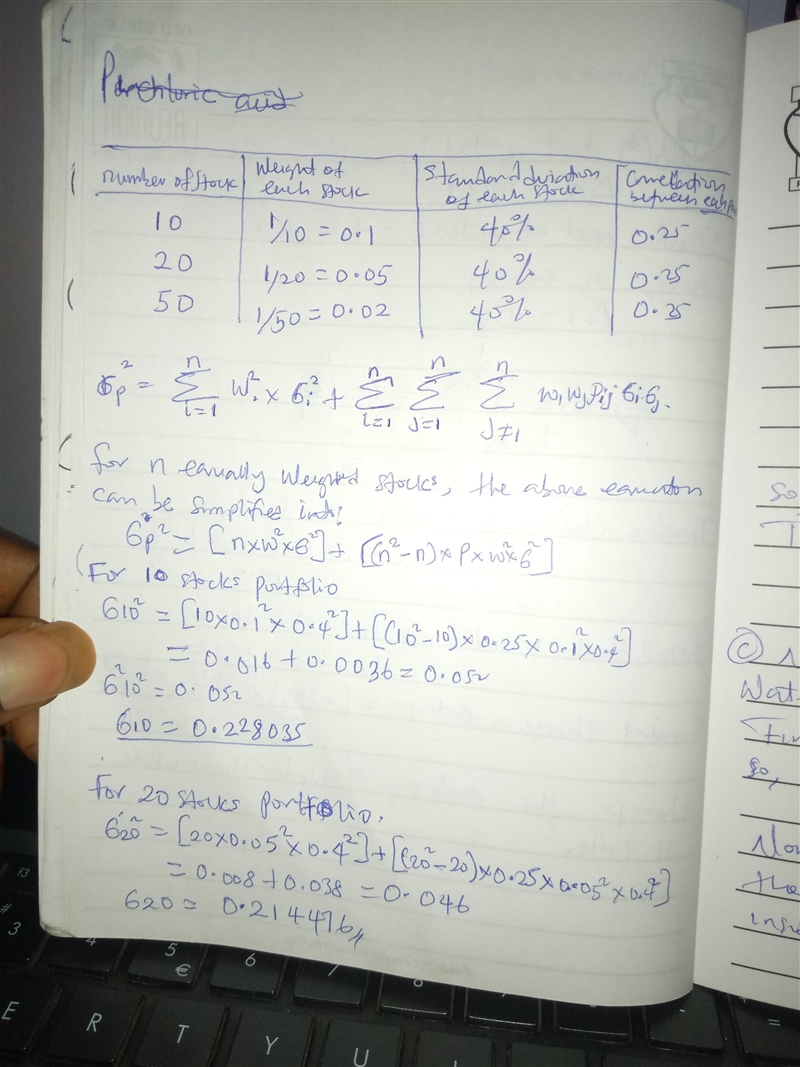 Perchloric acid
number of stock | Weight of each stock | Standard diviation of each stock | Correllation between each
10 | 1/10 = 0.1 | 40% | 0.25
20 | 1/20 = 0.05 | 40% | 0.25
50 | 1/50 = 0.02 | 40% | 0.25
σp² = Σ(i=1, n) wi² × σi² + Σ(i=1, n) Σ(j=1, n) Σ(j≠1, n) wi wj Pij σi σj.
for n equally weighted stocks, the above equation
can be simplifies into:
σp² = [n×w²×σ²] + [(n²-n)×P×w²×σ²]
For 10 stocks portfolio
σ10² = [10×0.1²×0.4²] + [(10²-10)×0.25×0.1²×0.4²]
= 0.016 + 0.0036 = 0.052
σ²10² = 0.052
σ10 = 0.228035
For 20 stocks portfolio.
σ20² = [20×0.05²×0.4²] + [(20²-20)×0.25×0.05²×0.4²]
= 0.008 + 0.038 = 0.046
σ20 = 0.214476
so
©
Wat
so,
Now
the